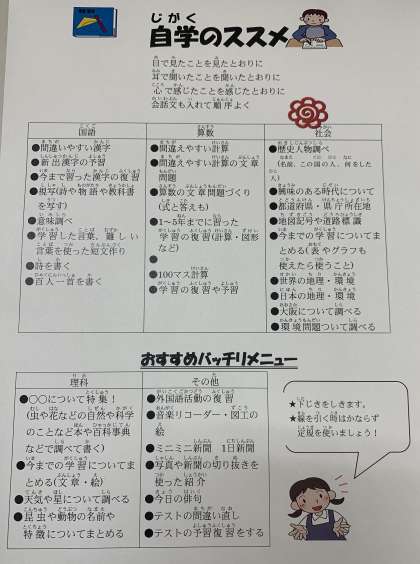 じがく
自学のススメ
目で見たことを見たとおりに
耳で聞いたことを聞いたとおりに
心で感じたことを感じたとおりに
会話文も入れて順序よく
国語
●間違いやすい漢字
●新出漢字の予習
●今まで習った漢字の復習
●視写(詩や物語や教科書
を写す)
●意味調べ
●学習した言葉、難しい
言葉を使った短文作り
●詩を書く
●百人一首を書く
算数
●間違えやすい計算
●間違えやすい文章
問題
●算数の文章問題づくり
(式と答えも)
●1~5年までに習った
学習の復習(計算・図形
など)
●
●100マス計算
●学習の復習や予習
社会
●歴史人物調べ
(名前、この国の人、何をした
人)
●興味のある時代について
●都道府県・県庁所在地
●地図記号や道路標識
●今までの学習についてま
とめる(表やグラフも
使えたら使うこと)
●世界の地理・環境
●日本の地理・環境
●大阪について調べる
●環境問題ついて調べる
おすすめバッチリメニュー
理科
●○○について特集!
(虫や花などの自然や科学
のことなど本や百科事典
などで調べて書く)
●今までの学習についてま
とめる(文章・絵)
●天気や星について調べる
●昆虫や動物の名前や
特徴についてまとめる
その他
●外国語活動の復習
●音楽リコーダー・図工の
絵
●ミニミニ新聞 1日新聞
●写真や新聞の切り抜きを
使った紹介
●今日の俳句
●テストの間違い直し
●テストの予習復習をする
★下じきをしきます。
★線を引く時はかならず
定規を使いましょう!